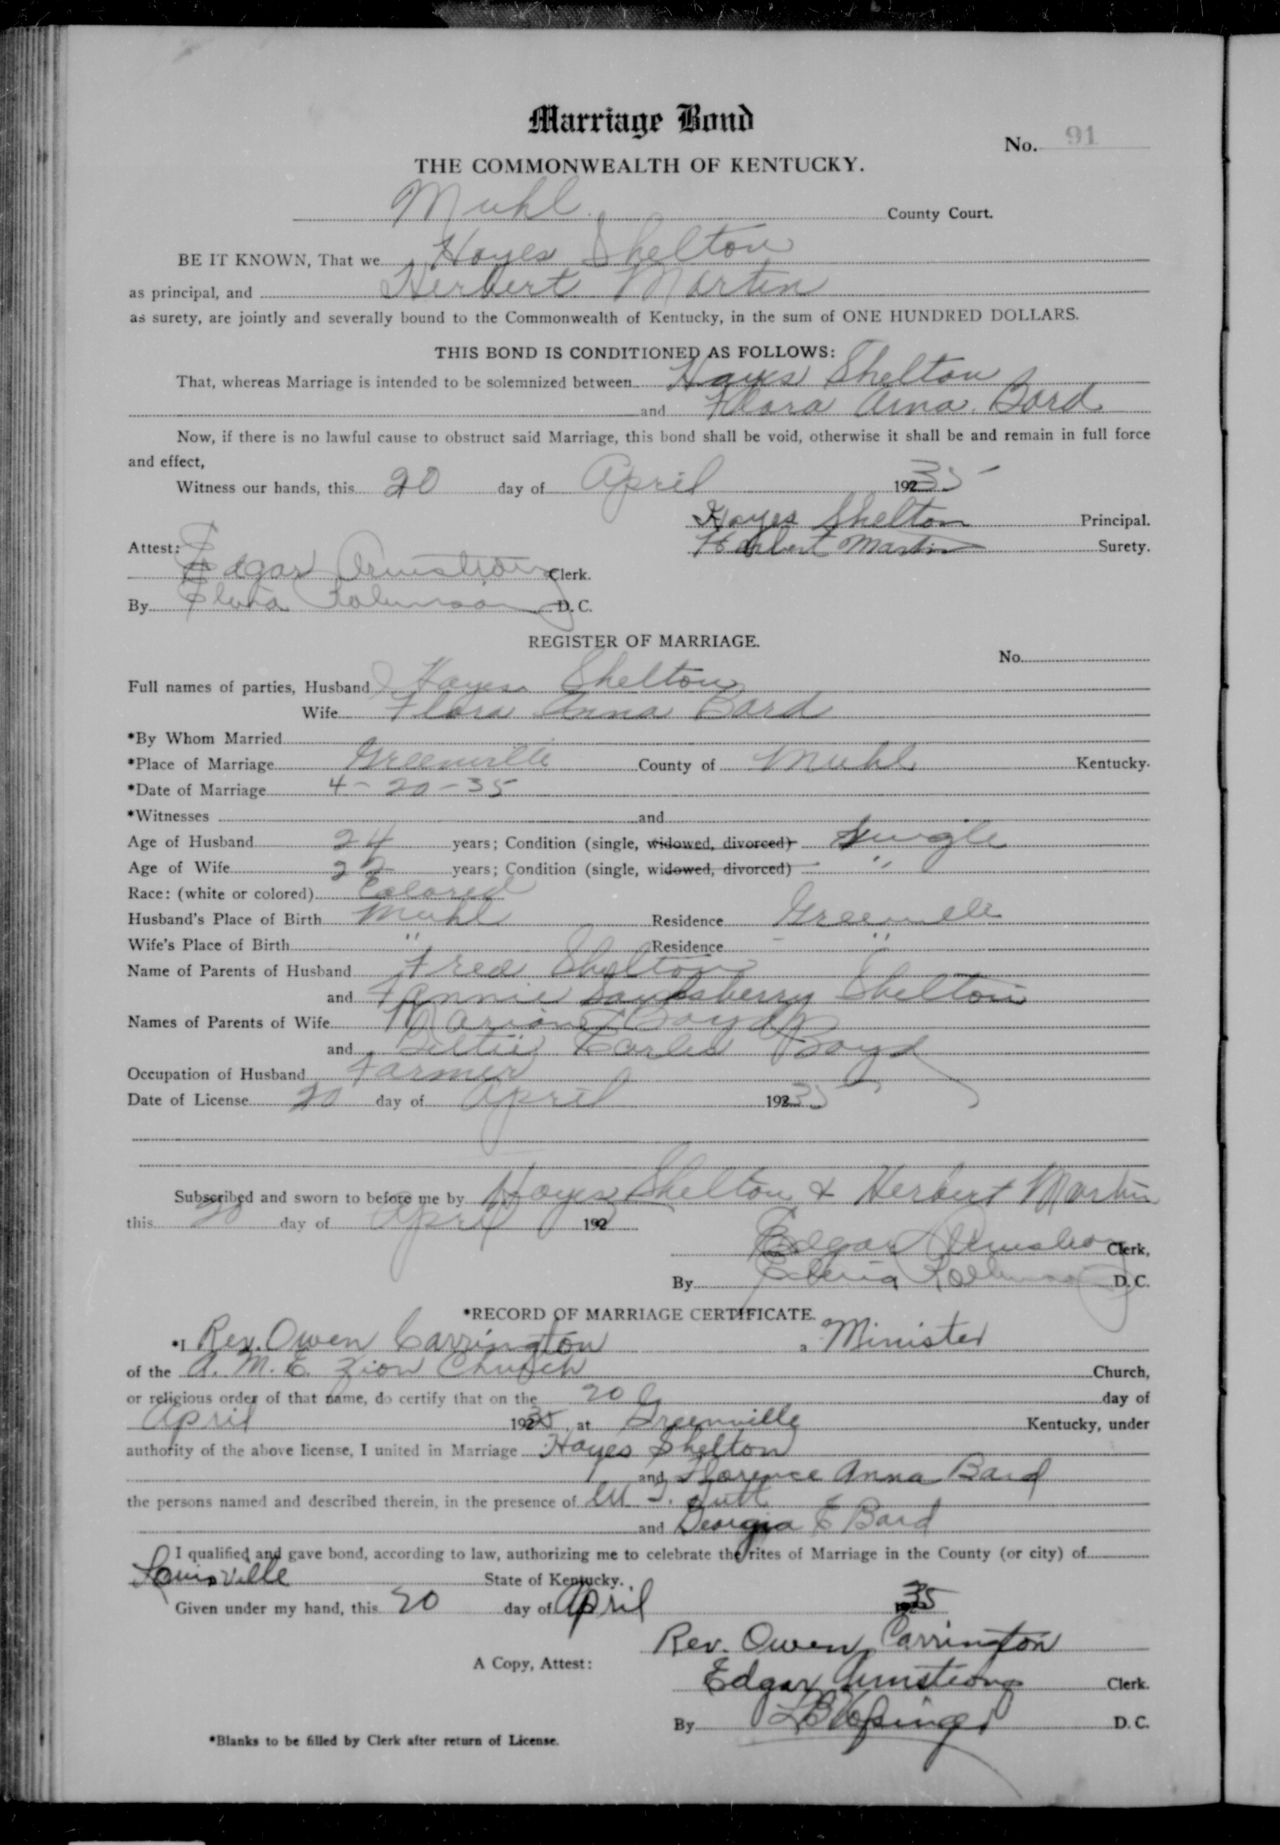 Marriage Bond
No. 91
THE COMMONWEALTH OF KENTUCKY.
Muhl. County Court.
BE IT KNOWN, That we Hayes Shelton
as principal, and Herbert Martin
as surety, are jointly and severally bound to the Commonwealth of Kentucky, in the sum of ONE HUNDRED DOLLARS.
THIS BOND IS CONDITIONED AS FOLLOWS:
That, whereas Marriage is intended to be solemnized between Hayes Shelton
and Flora Anna Bard
Now, if there is no lawful cause to obstruct said Marriage, this bond shall be void, otherwise it shall be and remain in full force
and effect,
Witness our hands, this 20 day of April 1935
Hayes Shelton Principal.
Herbert Martin Surety.
Attest:
Edgar Armstrong Clerk.
By Robinson D. C.
REGISTER OF MARRIAGE.
No.
Full names of parties, Husband Hayes Shelton
Wife Flora Anna Bard
*By Whom Married
*Place of Marriage Greenville County of Muhl Kentucky.
*Date of Marriage 4-20-35
*Witnesses and
Age of Husband 24 years; Condition (single, widowed, divorced) Single
Age of Wife 22 years; Condition (single, widowed, divorced) "
Race: (white or colored) Colored
Husband's Place of Birth Muhl Residence Greenville
Wife's Place of Birth " Residence "
Name of Parents of Husband Fred Shelton
and Fannie Shelton
Names of Parents of Wife Marion Boyd
and Earles Boyd
Occupation of Husband Farmer
Date of License 20 day of April 1935
Subscribed and sworn to before me by Hayes Shelton & Herbert Martin
this 20 day of April 192
Edgar Armstrong Clerk,
By Robinson D. C.
*RECORD OF MARRIAGE CERTIFICATE.
*I Rev. Owen Carrington a Minister
of the A. M. E. Zion Church Church,
or religious order of that name, do certify that on the 20 day of
April 1935, at Greenville Kentucky, under
authority of the above license, I united in Marriage Hayes Shelton
and Florence Anna Bard
the persons named and described therein, in the presence of
and Georgia E Bard
I qualified and gave bond, according to law, authorizing me to celebrate the rites of Marriage in the County (or city) of
Louisville State of Kentucky.
Given under my hand, this 20 day of April 35
Rev. Owen Carrington
A Copy, Attest: Edgar Armstrong Clerk.
By D. C.
*Blanks to be filled by Clerk after return of License.